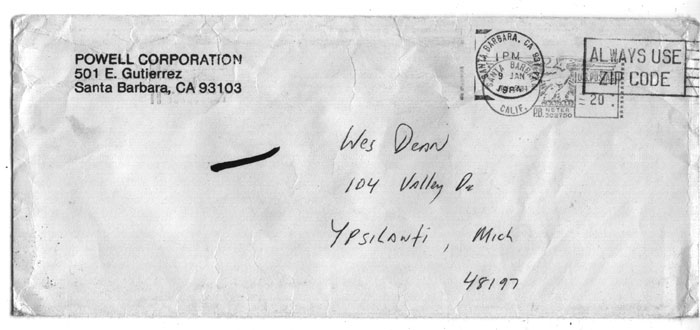 POWELL CORPORATION
501 E. Gutierrez
Santa Barbara, CA 93103
SANTA BARBARA, CA
1 PM
9 JAN
1984
CALIF.
ALWAYS USE
ZIP CODE
20
METER
Wes Dean
104 Valley Dr
Ypsilanti, Mich
48197